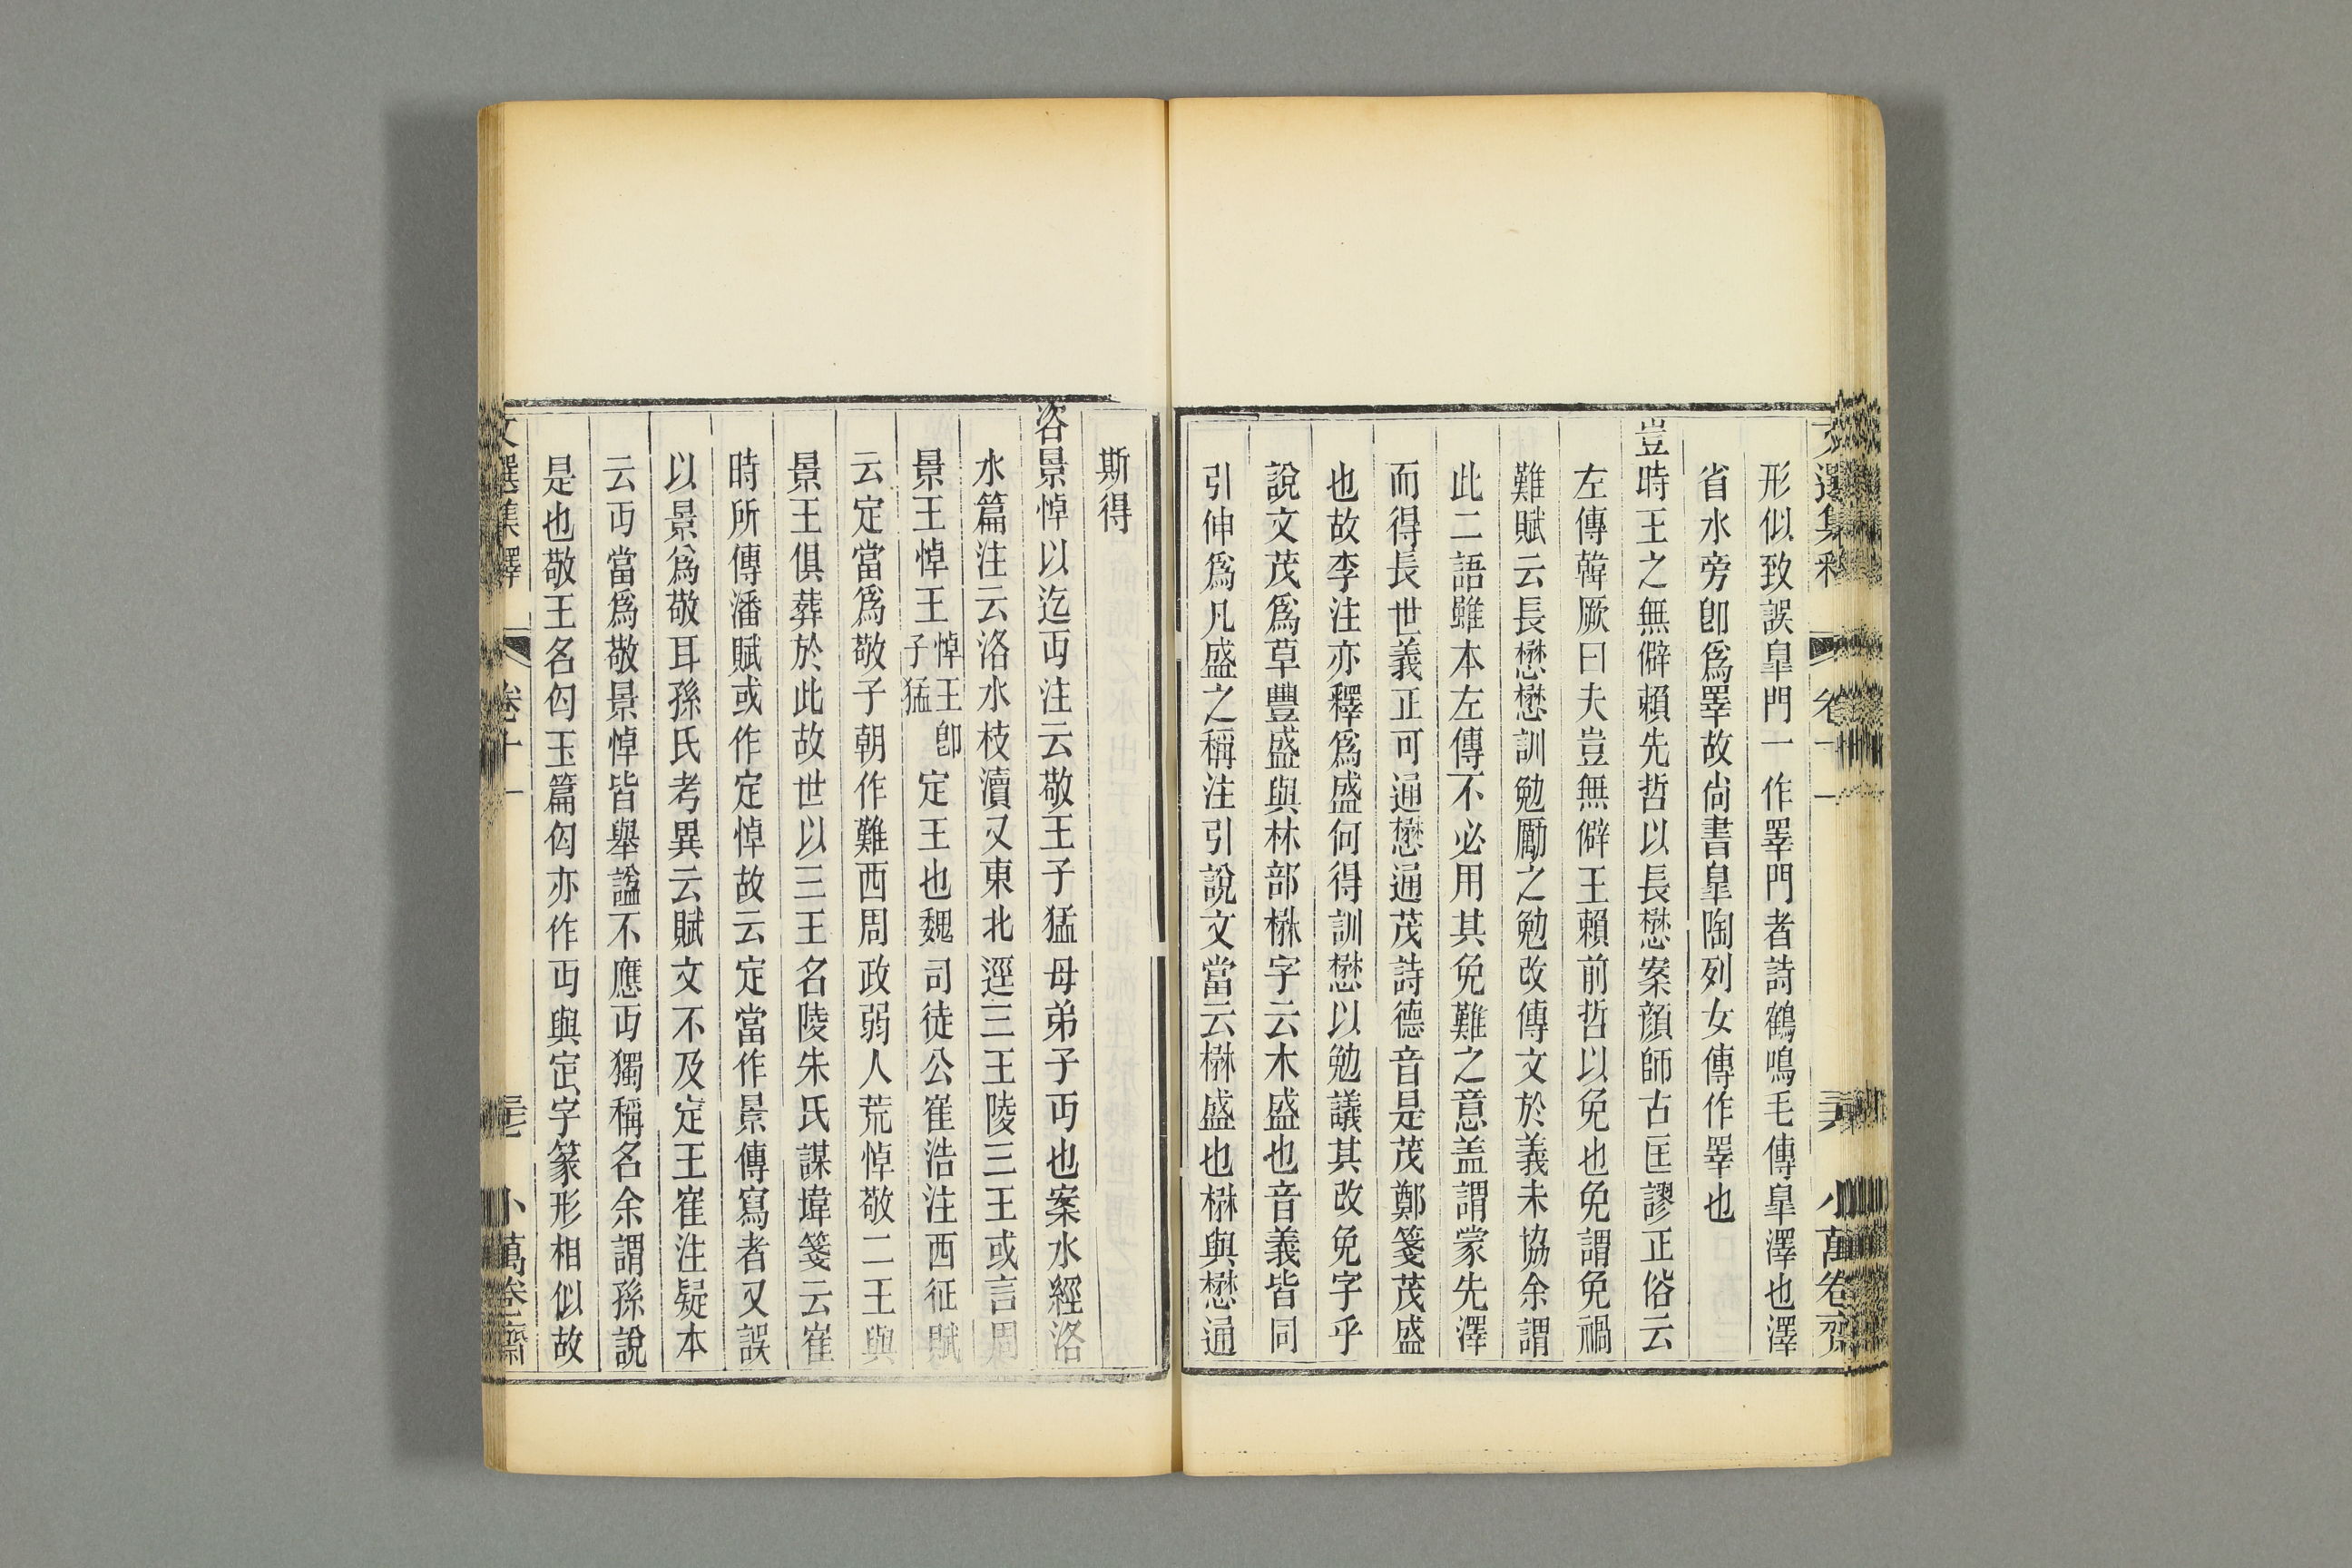 文選集釋 卷十一 三六 小萬卷齋
形似致誤臯門一作睪門者詩鶴鳴毛傳臯澤也澤
省水旁卽爲睪故尙書臯陶列女傳作睪也
豈時王之無僻賴先哲以長懋案顏師古匡謬正俗云
左傳韓厥曰夫豈無僻王賴前哲以免也免謂免禍
難賦云長懋懋訓勉勵之勉改傳文於義未協余謂
此二語雖本左傳不必用其免難之意盖謂蒙先澤
而得長世義正可通懋通茂詩德音是茂鄭箋茂盛
也故李注亦釋爲盛何得訓懋以勉議其改免字乎
說文茂爲草豐盛與林部楙字云木盛也音義皆同
引伸爲凡盛之稱注引說文當云楙盛也楙與懋通
斯得
咨景悼以迄丏注云敬王子猛母弟子丏也案水經洛
水篇注云洛水枝瀆又東北逕三王陵三王或言周
景王悼王悼王卽子猛定王也魏司徒公崔浩注西征賦
云定當爲敬子朝作難西周政弱人荒悼敬二王與
景王俱葬於此故世以三王名陵朱氏謀㙔箋云崔
時所傳潘賦或作定悼故云定當作景傳寫者又誤
以景爲敬耳孫氏考異云賦文不及定王崔注疑本
云丏當爲敬景悼皆舉謚不應丏獨稱名余謂孫說
是也敬王名匃玉篇匃亦作丏與定字篆形相似故
文選集釋 卷十一 三七 小萬卷齋